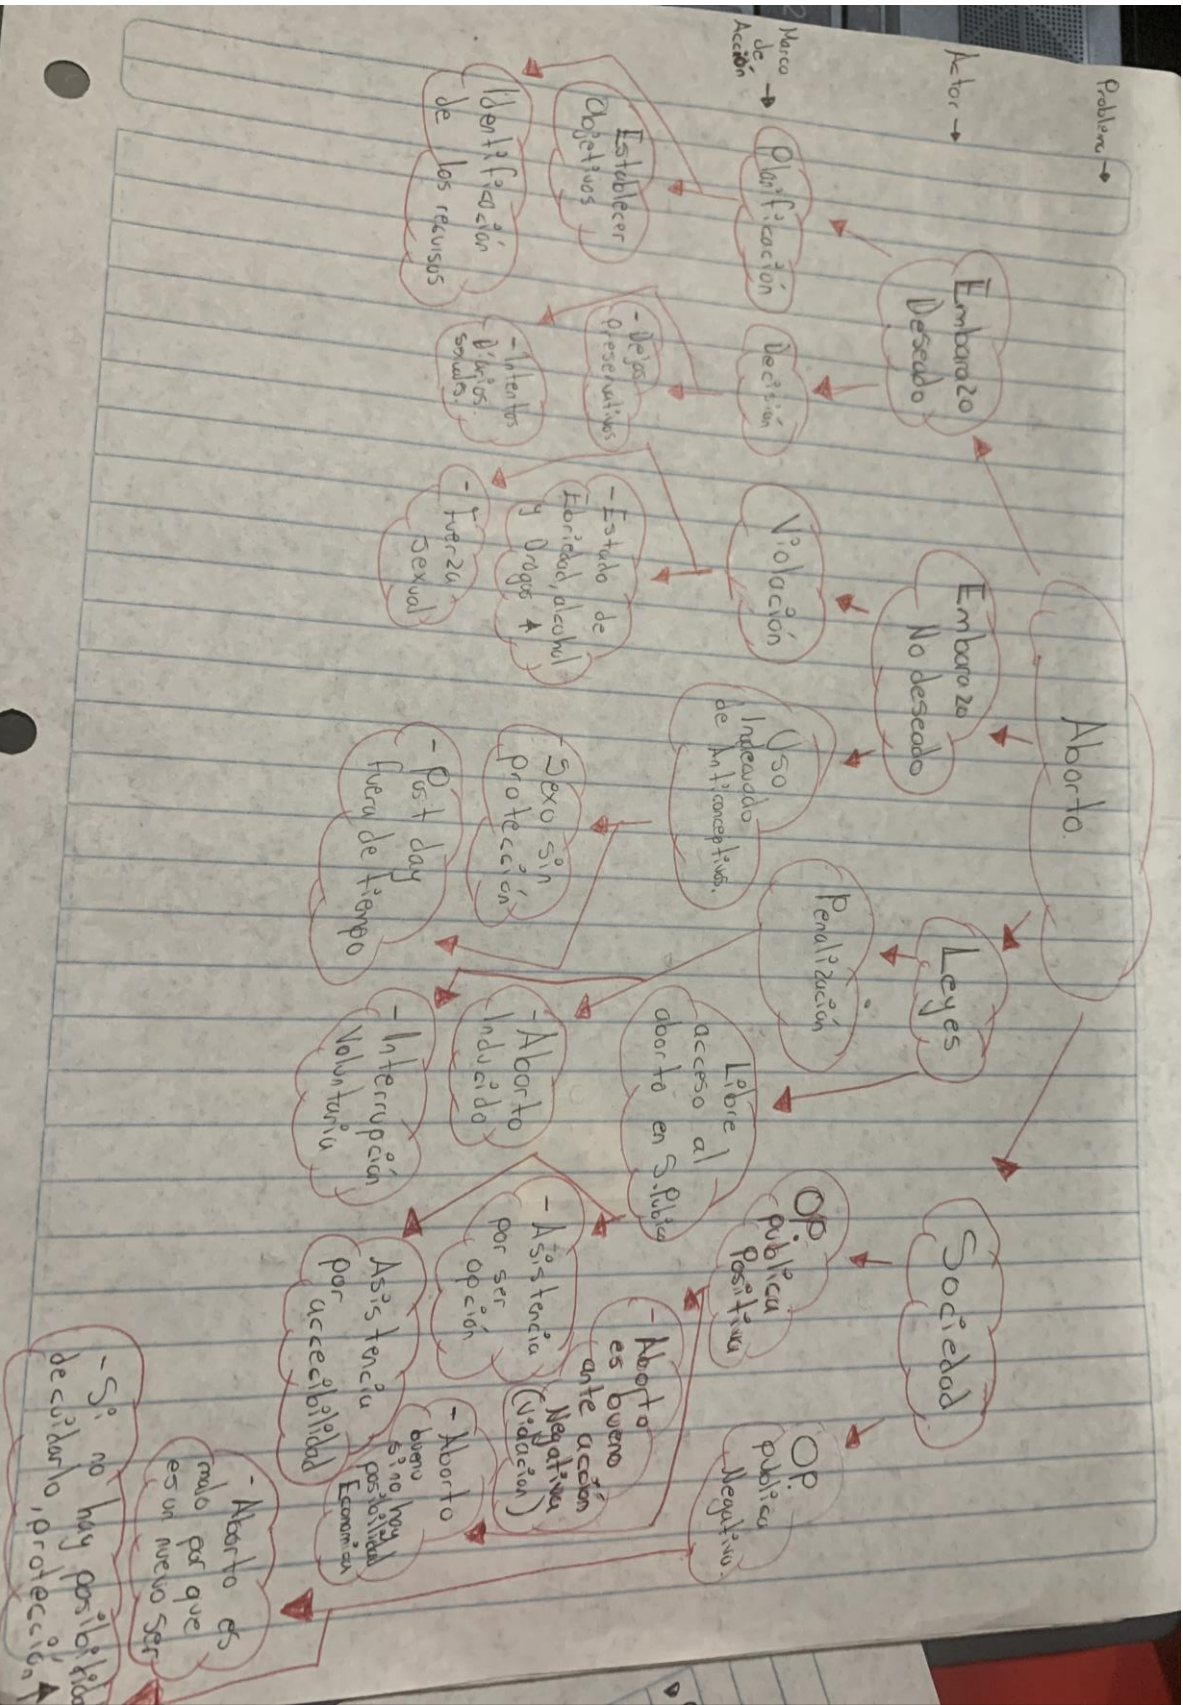 Problema →
Aborto.
Actor →
Embarazo
Deseado.
Embarazo
No deseado
Leyes
Sociedad
Marco
de →
Acción
Planificación
Decisión
Violación
Uso
Indecuado
de Anticonceptivos.
Penalización
Libre
acceso al
aborto en S.Publica
Op.
publica
Positiva
Op
publica
Negativa.
Establecer
Objetivos
Identificación
de los recursos
- Dejar
preservativos
- Intentos
Diarios
sexuales.
- Estado de
Ebriedad, alcohol
y Drogas
- Fuerza
Sexual
- Sexo sin
protección
- Post day
fuera de tiempo
- Aborto
Inducido
- Interrupción
Voluntaria
- Asistencia
por ser
opción
Asistencia
por accecibilidad
- Aborto
es bueno
ante acción
Negativa
(Violación)
- Aborto
bueno
si no hay
posibilidad
Economica
- Aborto es
malo por que
es un nuevo ser
- Si no hay posibilidad
de cuidarlo, protección